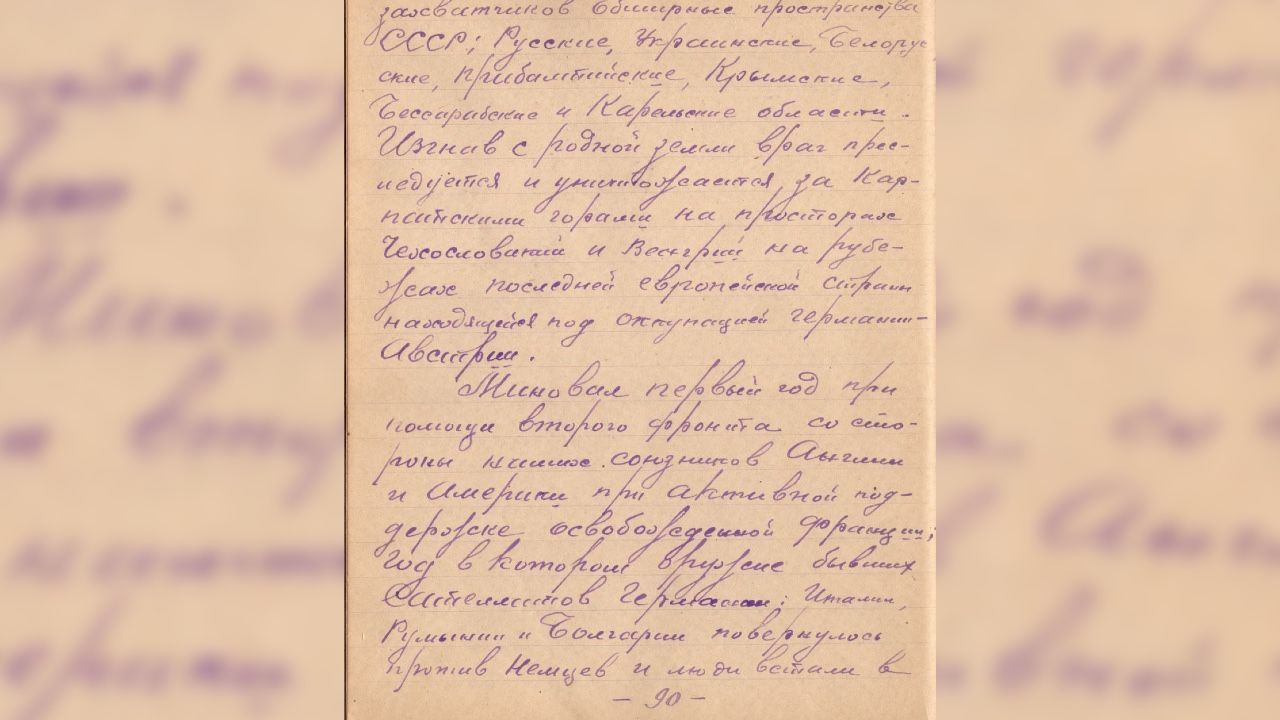 захватчиков обширные пространства
СССР; Русские, Украинские, Белорус
ские, прибалтийские, Крымские,
Бессарабские и Карельские области.
Изгнав с родной земли враг прес-
ледуется и уничтожается за Кар-
патскими горами на просторах
Чехословакии и Венгрии на рубе-
жах последней европейской страны
находящейся под оккупацией германии-
Австрии.
Миновал первый год при
помощи второго фронта со сто-
роны наших союзников Англии
и Америки при активной под-
держке освобожденной франции;
год в котором оружие бывших
Сателлитов Германии: Италии,
Румынии и Болгарии повернулось
против Немцев и люди встали в
- 90 -